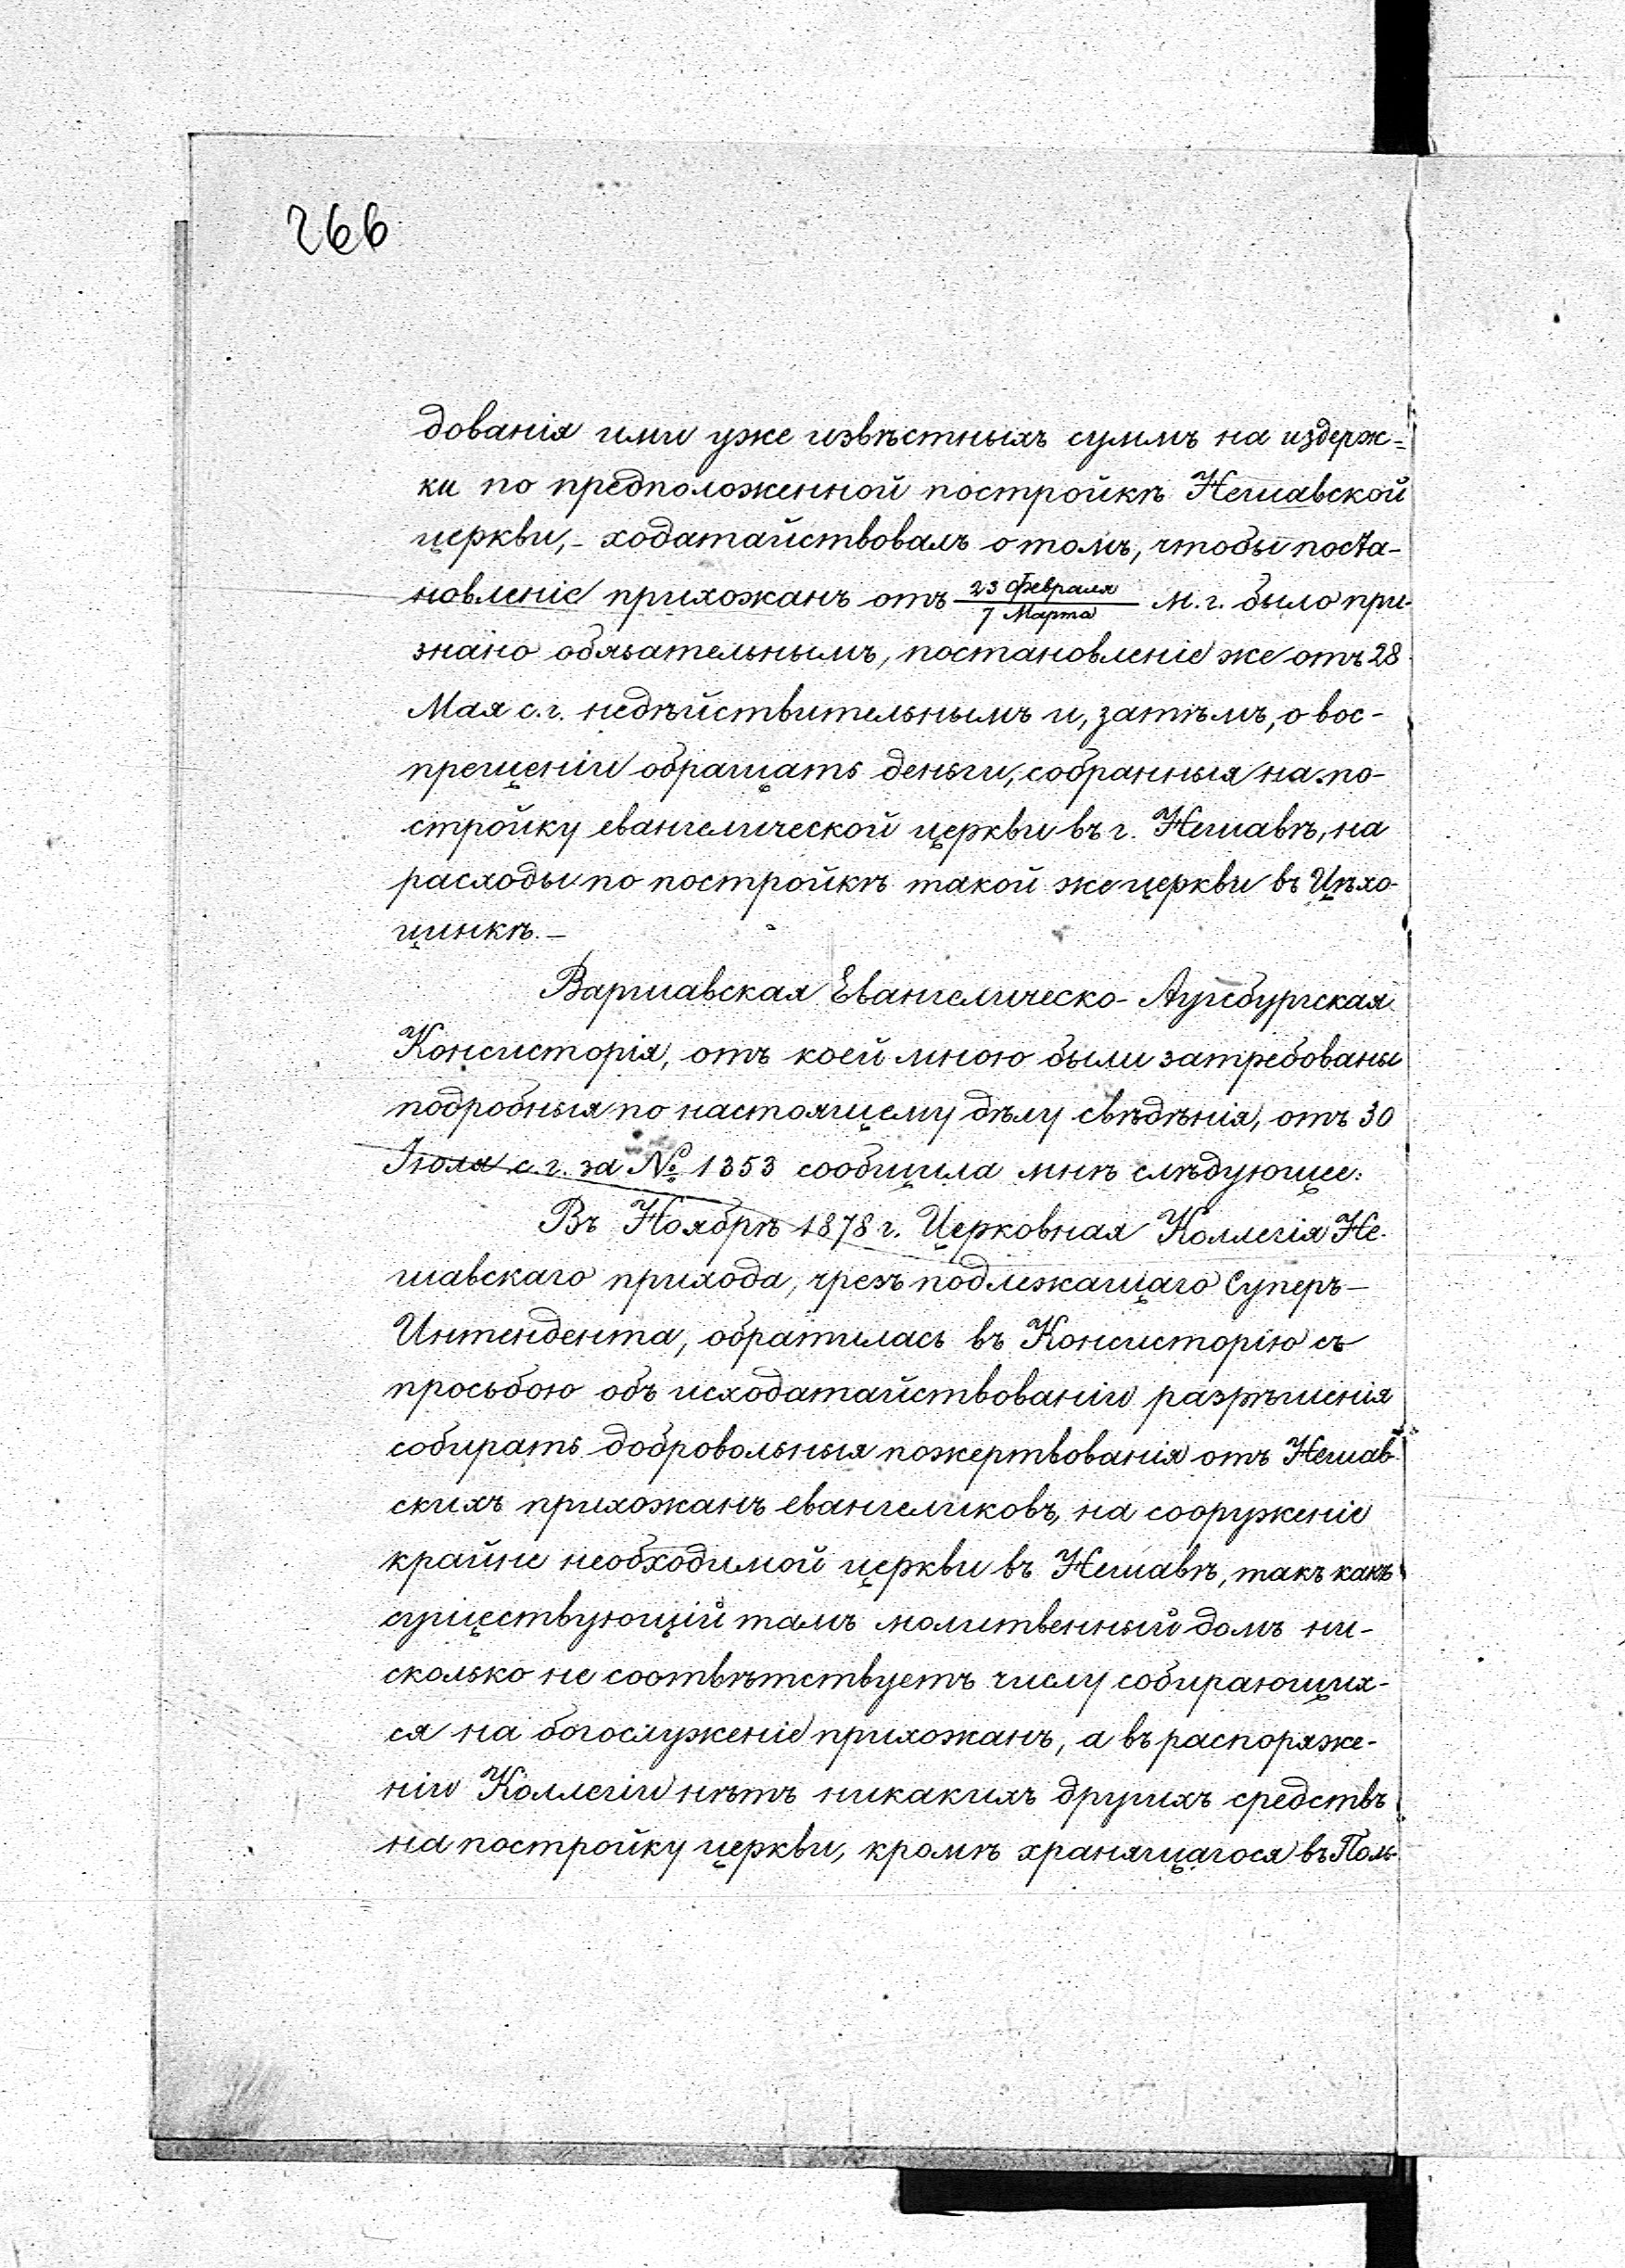 266
дованія ими уже извѣстныхъ суммъ на издерж-
ки по предположенной постройкѣ Нешавской
церкви,- ходатайствовалъ о томъ, чтобы поста-
новленіе прихожанъ отъ 23 Февраля / 7 Марта м.г. было при-
знано обязательнымъ, постановленіе же отъ 28
Мая с.г. недѣйствительнымъ и, затѣмъ, о вос-
прещеніи обращать деньги, собранныя на по-
стройку евангелической церкви въ г. Нешавѣ, на
расходы по постройкѣ такой же церкви въ Цѣхо-
цинкѣ.-
Варшавская Евангелическо-Аугсбургская
Консисторія, отъ коей мною были затребованы
подробныя по настоящему дѣлу свѣдѣнія, отъ 30
Іюля с.г. за № 1353 сообщила мнѣ слѣдующее:
Въ Ноябрѣ 1878 г. Церковная Коллегія Не-
шавскаго прихода, чрезъ подлежащаго Суперъ-
Интендента, обратилась въ Консисторію съ
просьбою объ исходатайствованіи разрѣшенія
собирать добровольныя пожертвованія отъ Нешав-
скихъ прихожанъ евангеликовъ, на сооруженіе
крайне необходимой церкви въ Нешавѣ, такъ какъ
существующій тамъ молитвенный домъ ни-
сколько не соотвѣтствуетъ числу собирающих-
ся на богослуженіе прихожанъ, а въ распоряже-
ніи Коллегіи нѣтъ никакихъ другихъ средствъ
на постройку церкви, кромѣ хранящагося въ Поль-